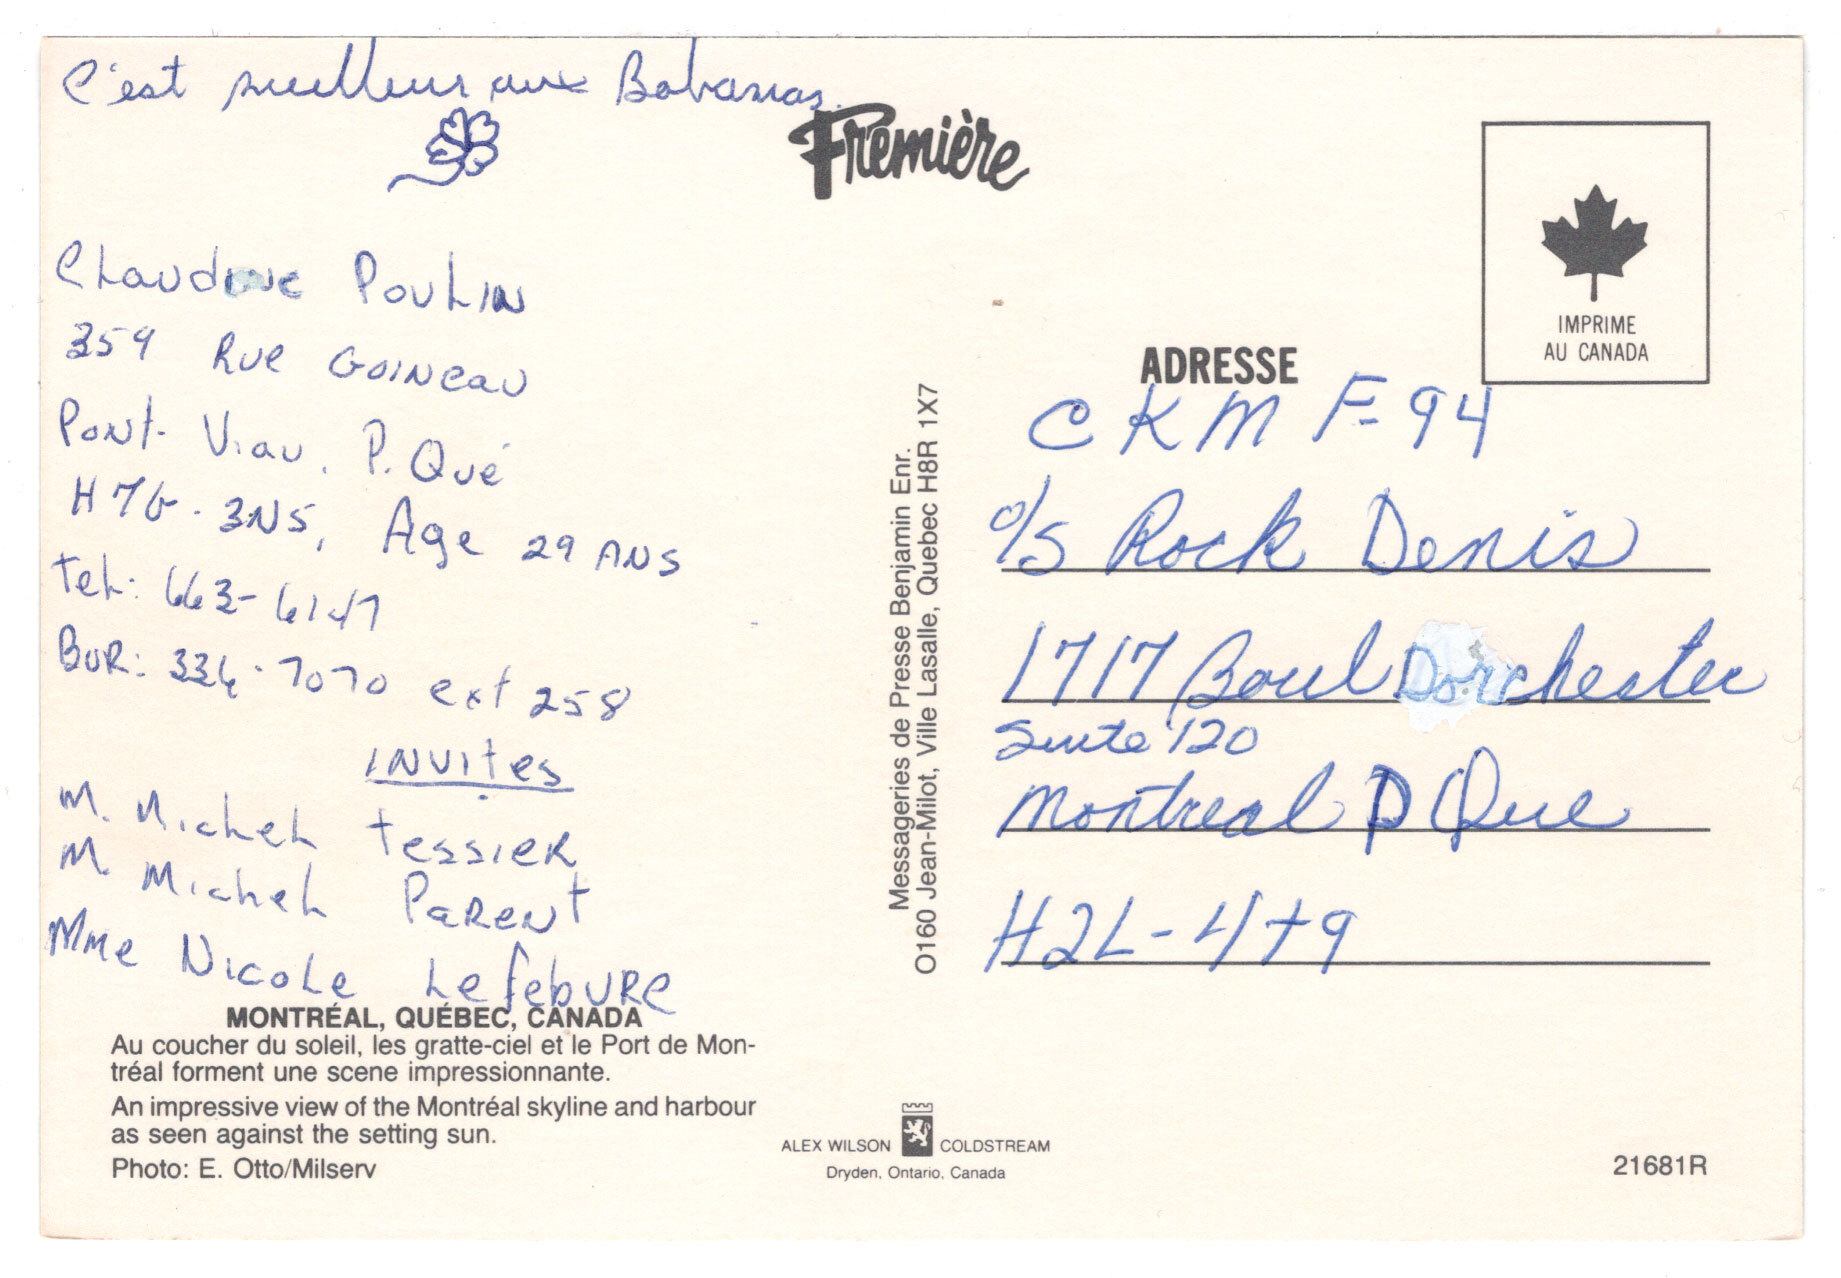 C'est meilleur aux Bahamas.
Première
Claudine Poulin
359 Rue Goineau
Pont-Viau. P. Qué
H7G-3N5, Age 29 ANS
Tel: 663-6147
BUR: 334-7070 ext 258
INVITES
M. Michel Tessier
M. Michel Parent
Mme Nicole Lefebvre
MONTRÉAL, QUÉBEC, CANADA
Au coucher du soleil, les gratte-ciel et le Port de Mon-
tréal forment une scene impressionnante.
An impressive view of the Montréal skyline and harbour
as seen against the setting sun.
Photo: E. Otto/Milserv
Messageries de Presse Benjamin Enr.
O160 Jean-Milot, Ville Lasalle, Quebec H8R 1X7
ALEX WILSON COLDSTREAM
Dryden, Ontario, Canada
IMPRIME
AU CANADA
ADRESSE
CKM F-94
a/s Rock Denis
1717 Boul Dorchester
Suite 120
Montreal P Que
H2L-4T9
21681R